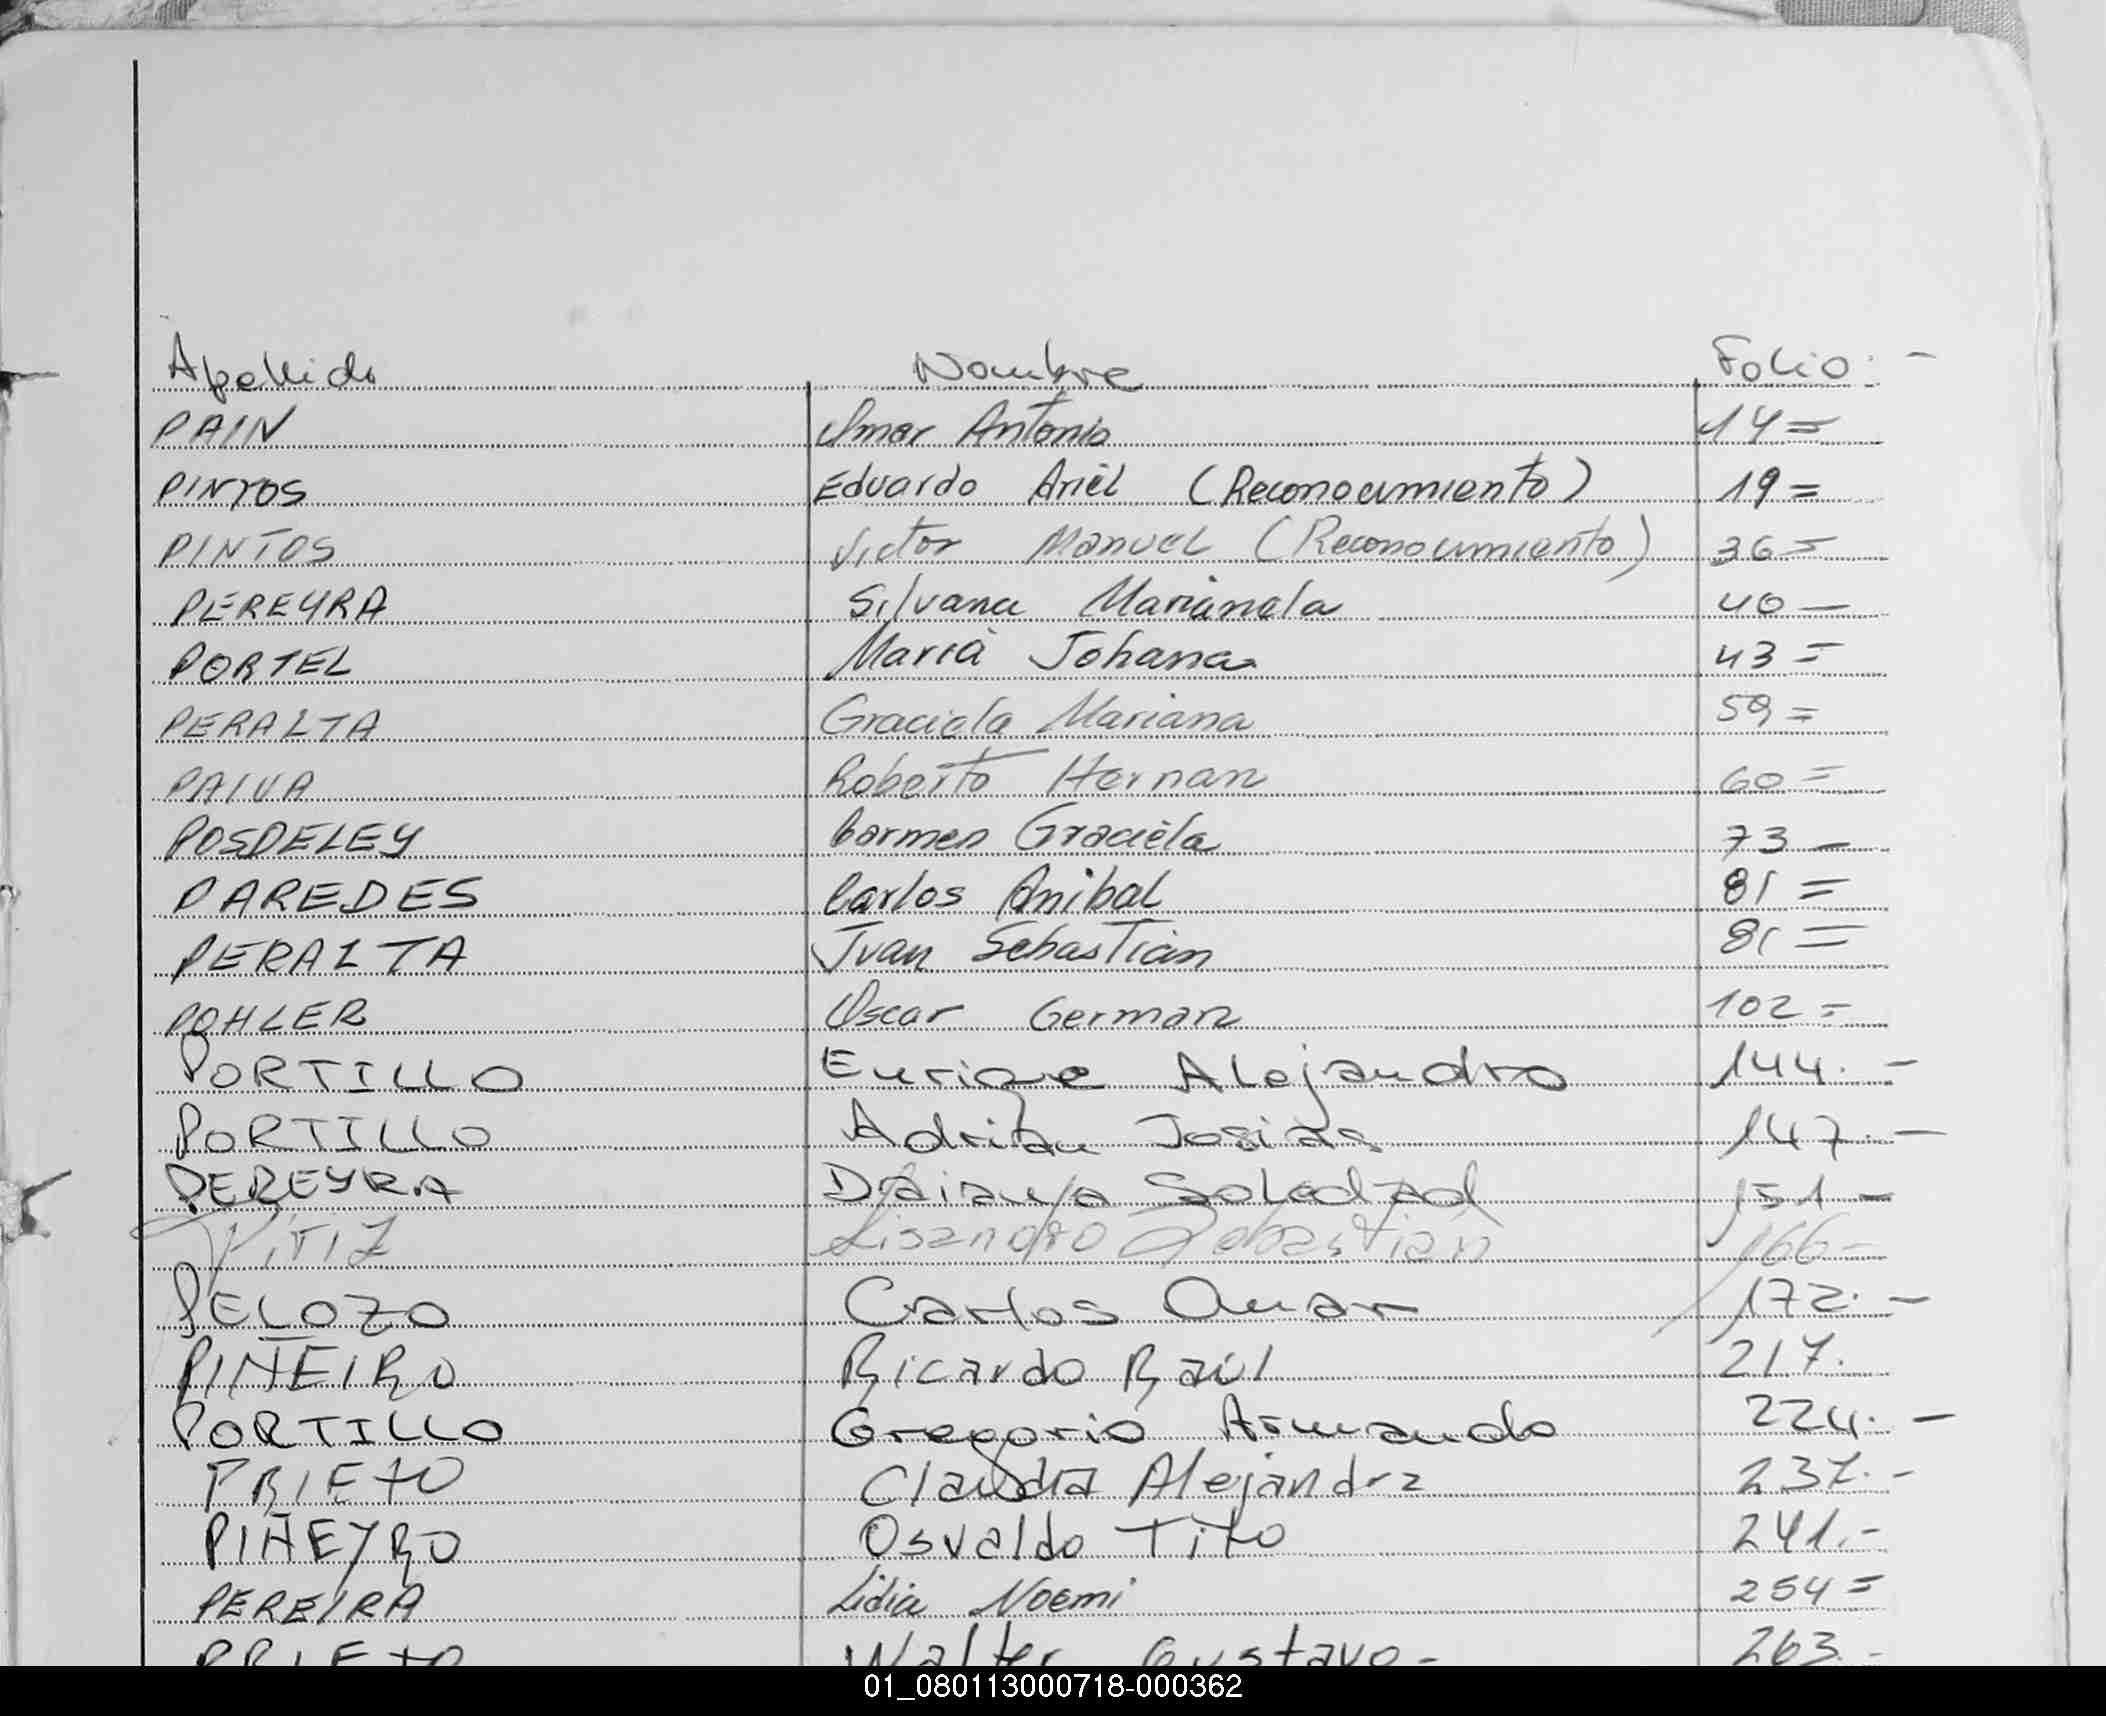 Apellido Nombre Folio.-
PAIN Omar Antonio 14=
PINTOS Eduardo Ariel (Reconocimiento) 19=
PINTOS Victor Manuel (Reconocimiento) 36=
PEREYRA Silvana Marianela 40-
PORTEL Maria Johana 43=
PERALTA Graciela Mariana 59=
PAIVA Roberto Hernan 60=
POSDELEY Carmen Graciela 73-
PAREDES Carlos Anibal 81=
PERALTA Juan Sebastian 81=
POHLER Oscar German 102=
PORTILLO Enrique Alejandro 144.-
PORTILLO Adrian Josias 147.-
PEREYRA Daiana Soledad 151-
PITIZ Lisandro Sebastian 166-
PELOZO Carlos Omar 172.-
PIÑEIRO Ricardo Raúl 217.
PORTILLO Gregorio Armando 224.-
PRIETO Claudia Alejandra 237.-
PIÑEYRO Osvaldo Tito 241.-
PEREIRA Lidia Noemi 254=
PRIETO Walter Gustavo- 263.-
01_080113000718-000362